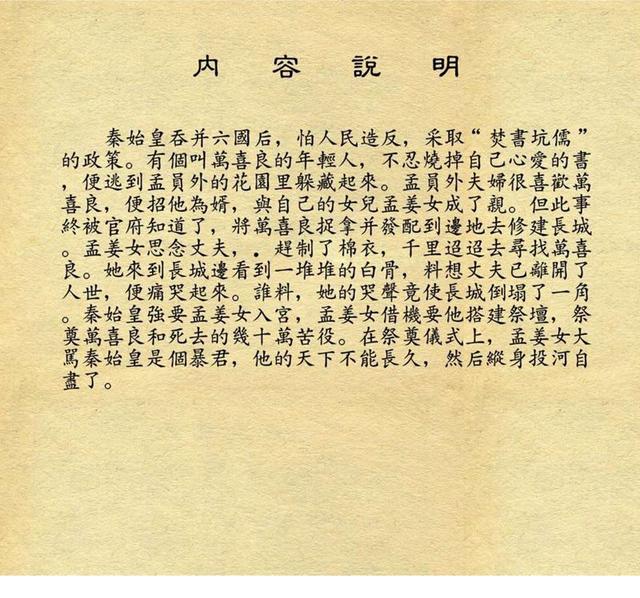 內容說明
秦始皇吞并六國后，怕人民造反，采取“焚書坑儒”
的政策。有個叫萬喜良的年輕人，不忍燒掉自己心愛的書
，便逃到孟員外的花園里躲藏起來。孟員外夫婦很喜歡萬
喜良，便招他為婿，與自己的女兒孟姜女成了親。但此事
終被官府知道了，將萬喜良捉拿并發配到邊地去修建長城
。孟姜女思念丈夫，．趕制了棉衣，千里迢迢去尋找萬喜
良。她來到長城邊看到一堆堆的白骨，料想丈夫已離開了
人世，便痛哭起來。誰料，她的哭聲竟使長城倒塌了一角
。秦始皇強要孟姜女入宮，孟姜女借機要他搭建祭壇，祭
奠萬喜良和死去的幾十萬苦役。在祭奠儀式上，孟姜女大
罵秦始皇是個暴君，他的天下不能長久，然后縱身投河自
盡了。